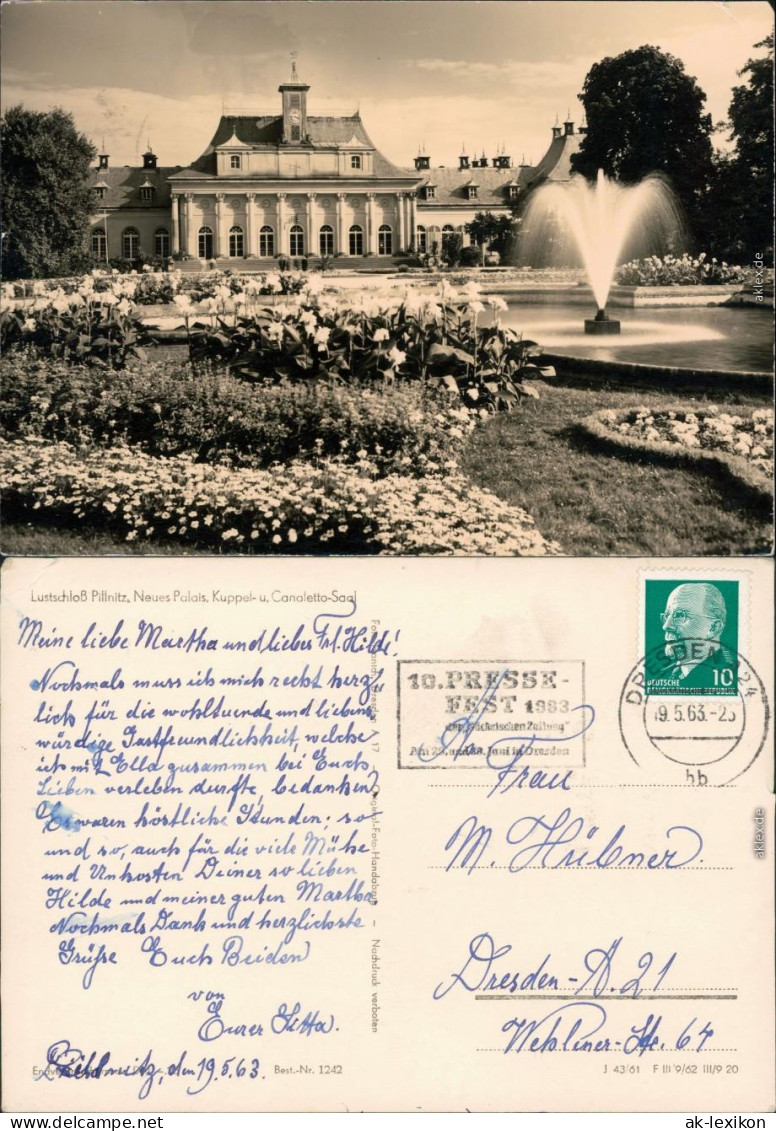 © aklex.de
Lustschloß Pillnitz, Neues Palais, Kuppel- u. Canaletto-Saal
Meine liebe Martha und liebes Frl. Hilde!
Nochmals muss ich mich recht herz-
lich für die wohltuende und liebens
würdige Gastfreundlichkeit welche
ich mit Ella zusammen bei Euch
Lieben verleben durfte, bedanken
Es waren köstliche Stunden; so
und so, auch für die viele Mühe
und Unkosten Deiner so lieben
Hilde und meiner guten Martha
Nochmals Dank und herzlichste
Grüße Euch Beiden
von
Eurer
den 19.5.63.
Best.-Nr. 1242
Nachdruck verboten
10. PRESSE-
FEST 1963
der „Sächsischen Zeitung"
Am 29. und 30. Juni in Dresden
DRESDEN A 24
19.5.63.-23
hb
DEUTSCHE
DEMOKRATISCHE REPUBLIK
10
Frau
M. Hübner.
Dresden-A. 21
64
J 43/61 F III/9/62 III/9 20
© aklex.de
www.delcampe.net
ak-lexikon